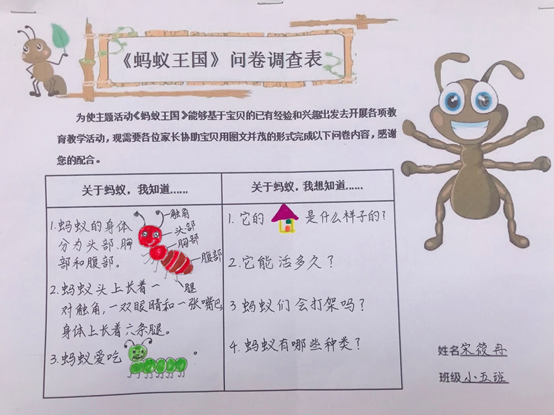 《蚂蚁王国》问卷调查表
为使主题活动《蚂蚁王国》能够基于宝贝的已有经验和兴趣出发去开展各项教
育教学活动，现需要各位家长协助宝贝用图文并茂的形式完成以下问卷内容，感谢
您的配合。
关于蚂蚁，我知道......
1.蚂蚁的身体
分为头部.胸
部和腹部。
触角
头部
胸部
腹部
腿
2.蚂蚁头上长着一
对触角，一双眼睛和一张嘴巴，
身体上长着六条腿。
3.蚂蚁爱吃。
关于蚂蚁，我想知道......
1.它的是什么样子的？
2.它能活多久？
3蚂蚁们会打架吗？
4.蚂蚁有哪些种类？
姓名宋筱冉
班级小五班